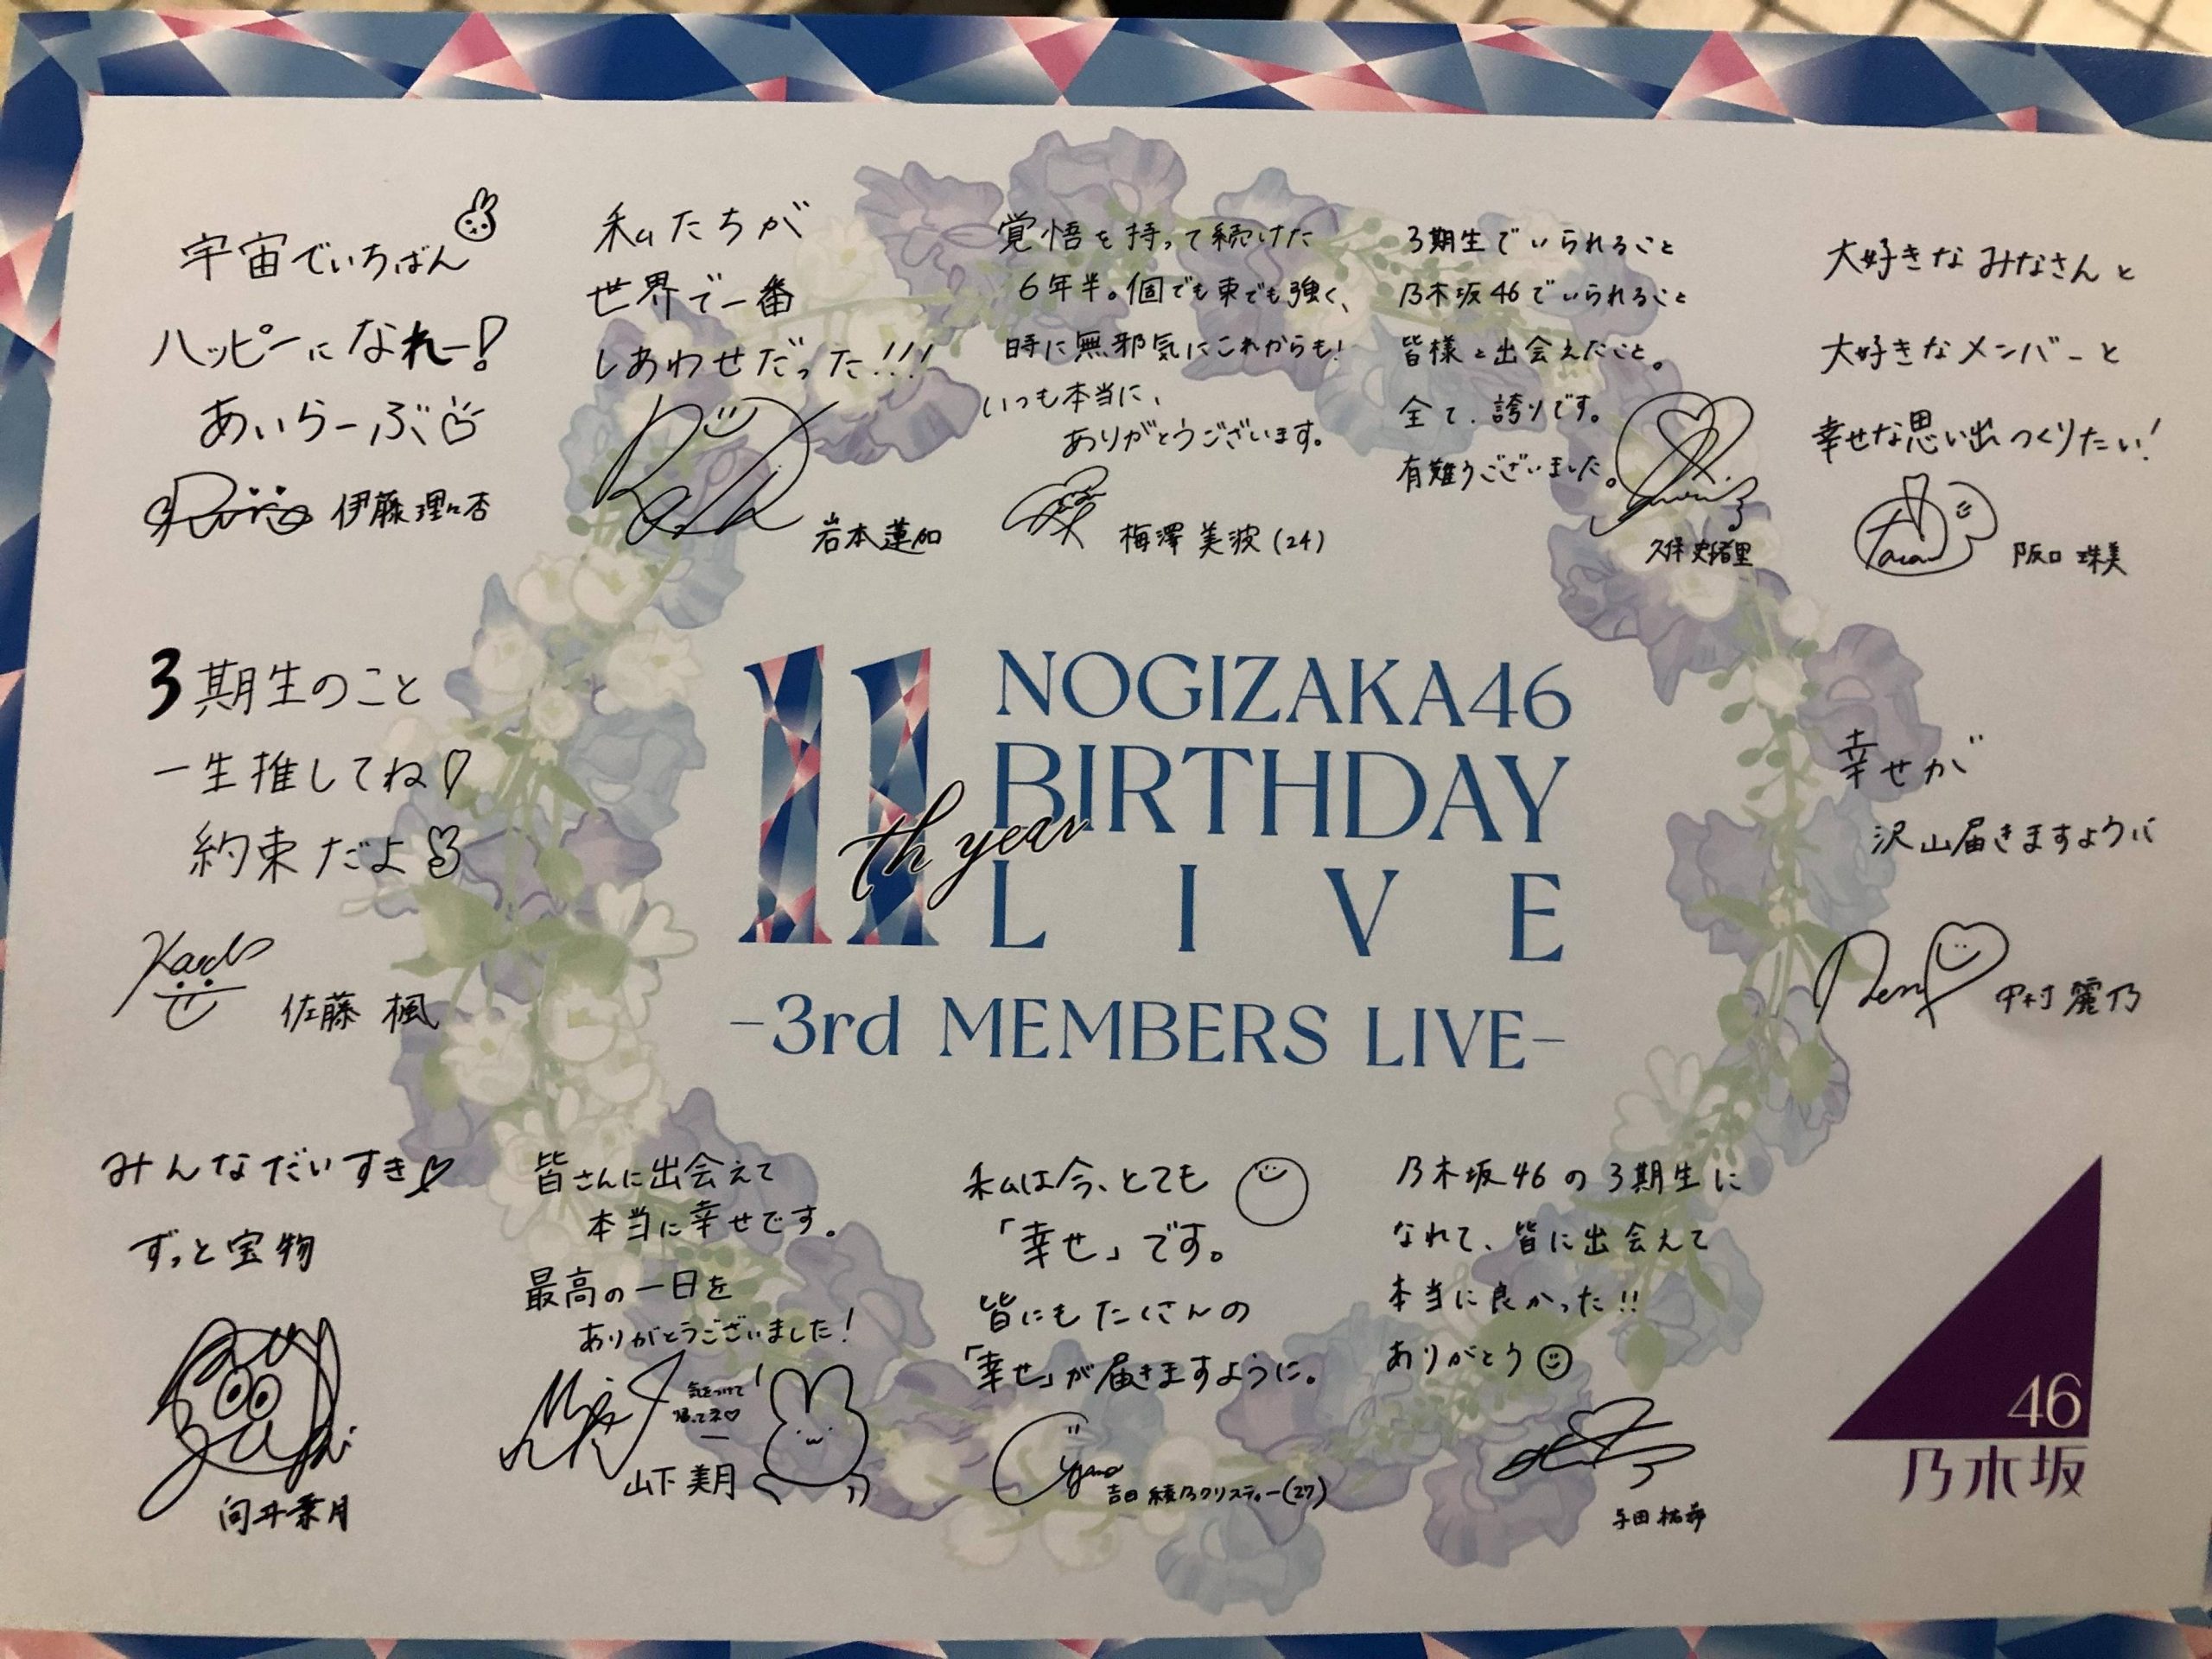 宇宙でいちばん
ハッピーになれー!
あいらーぶ
伊藤理々杏
私たちが
世界で一番
しあわせだった!!!
岩本蓮加
覚悟を持って続けた
6年半。個でも束でも強く、
時に無邪気にこれからも!
いつも本当に、
ありがとうございます。
梅澤美波(24)
3期生でいられること
乃木坂46でいられること
皆様と出会えたこと。
全て、誇りです。
有難うございました。
久保史緒里
大好きなみなさんと
大好きなメンバーと
幸せな思い出つくりたい!
阪口珠美
3期生のこと
一生推してね
約束だよ
佐藤楓
11th year
NOGIZAKA46
BIRTHDAY
LIVE
-3rd MEMBERS LIVE-
幸せが
沢山届きますように
中村麗乃
みんなだいすき
ずっと宝物
向井葉月
皆さんに出会えて
本当に幸せです。
最高の一日を
ありがとうございました!
気をつけて
帰ってネ♡
山下美月
私は今、とても
「幸せ」です。
皆にもたくさんの
「幸せ」が届きますように。
吉田綾乃クリスティー(27)
乃木坂46の3期生に
なれて、皆に出会えて
本当に良かった!!
ありがとう
与田祐希
46
乃木坂